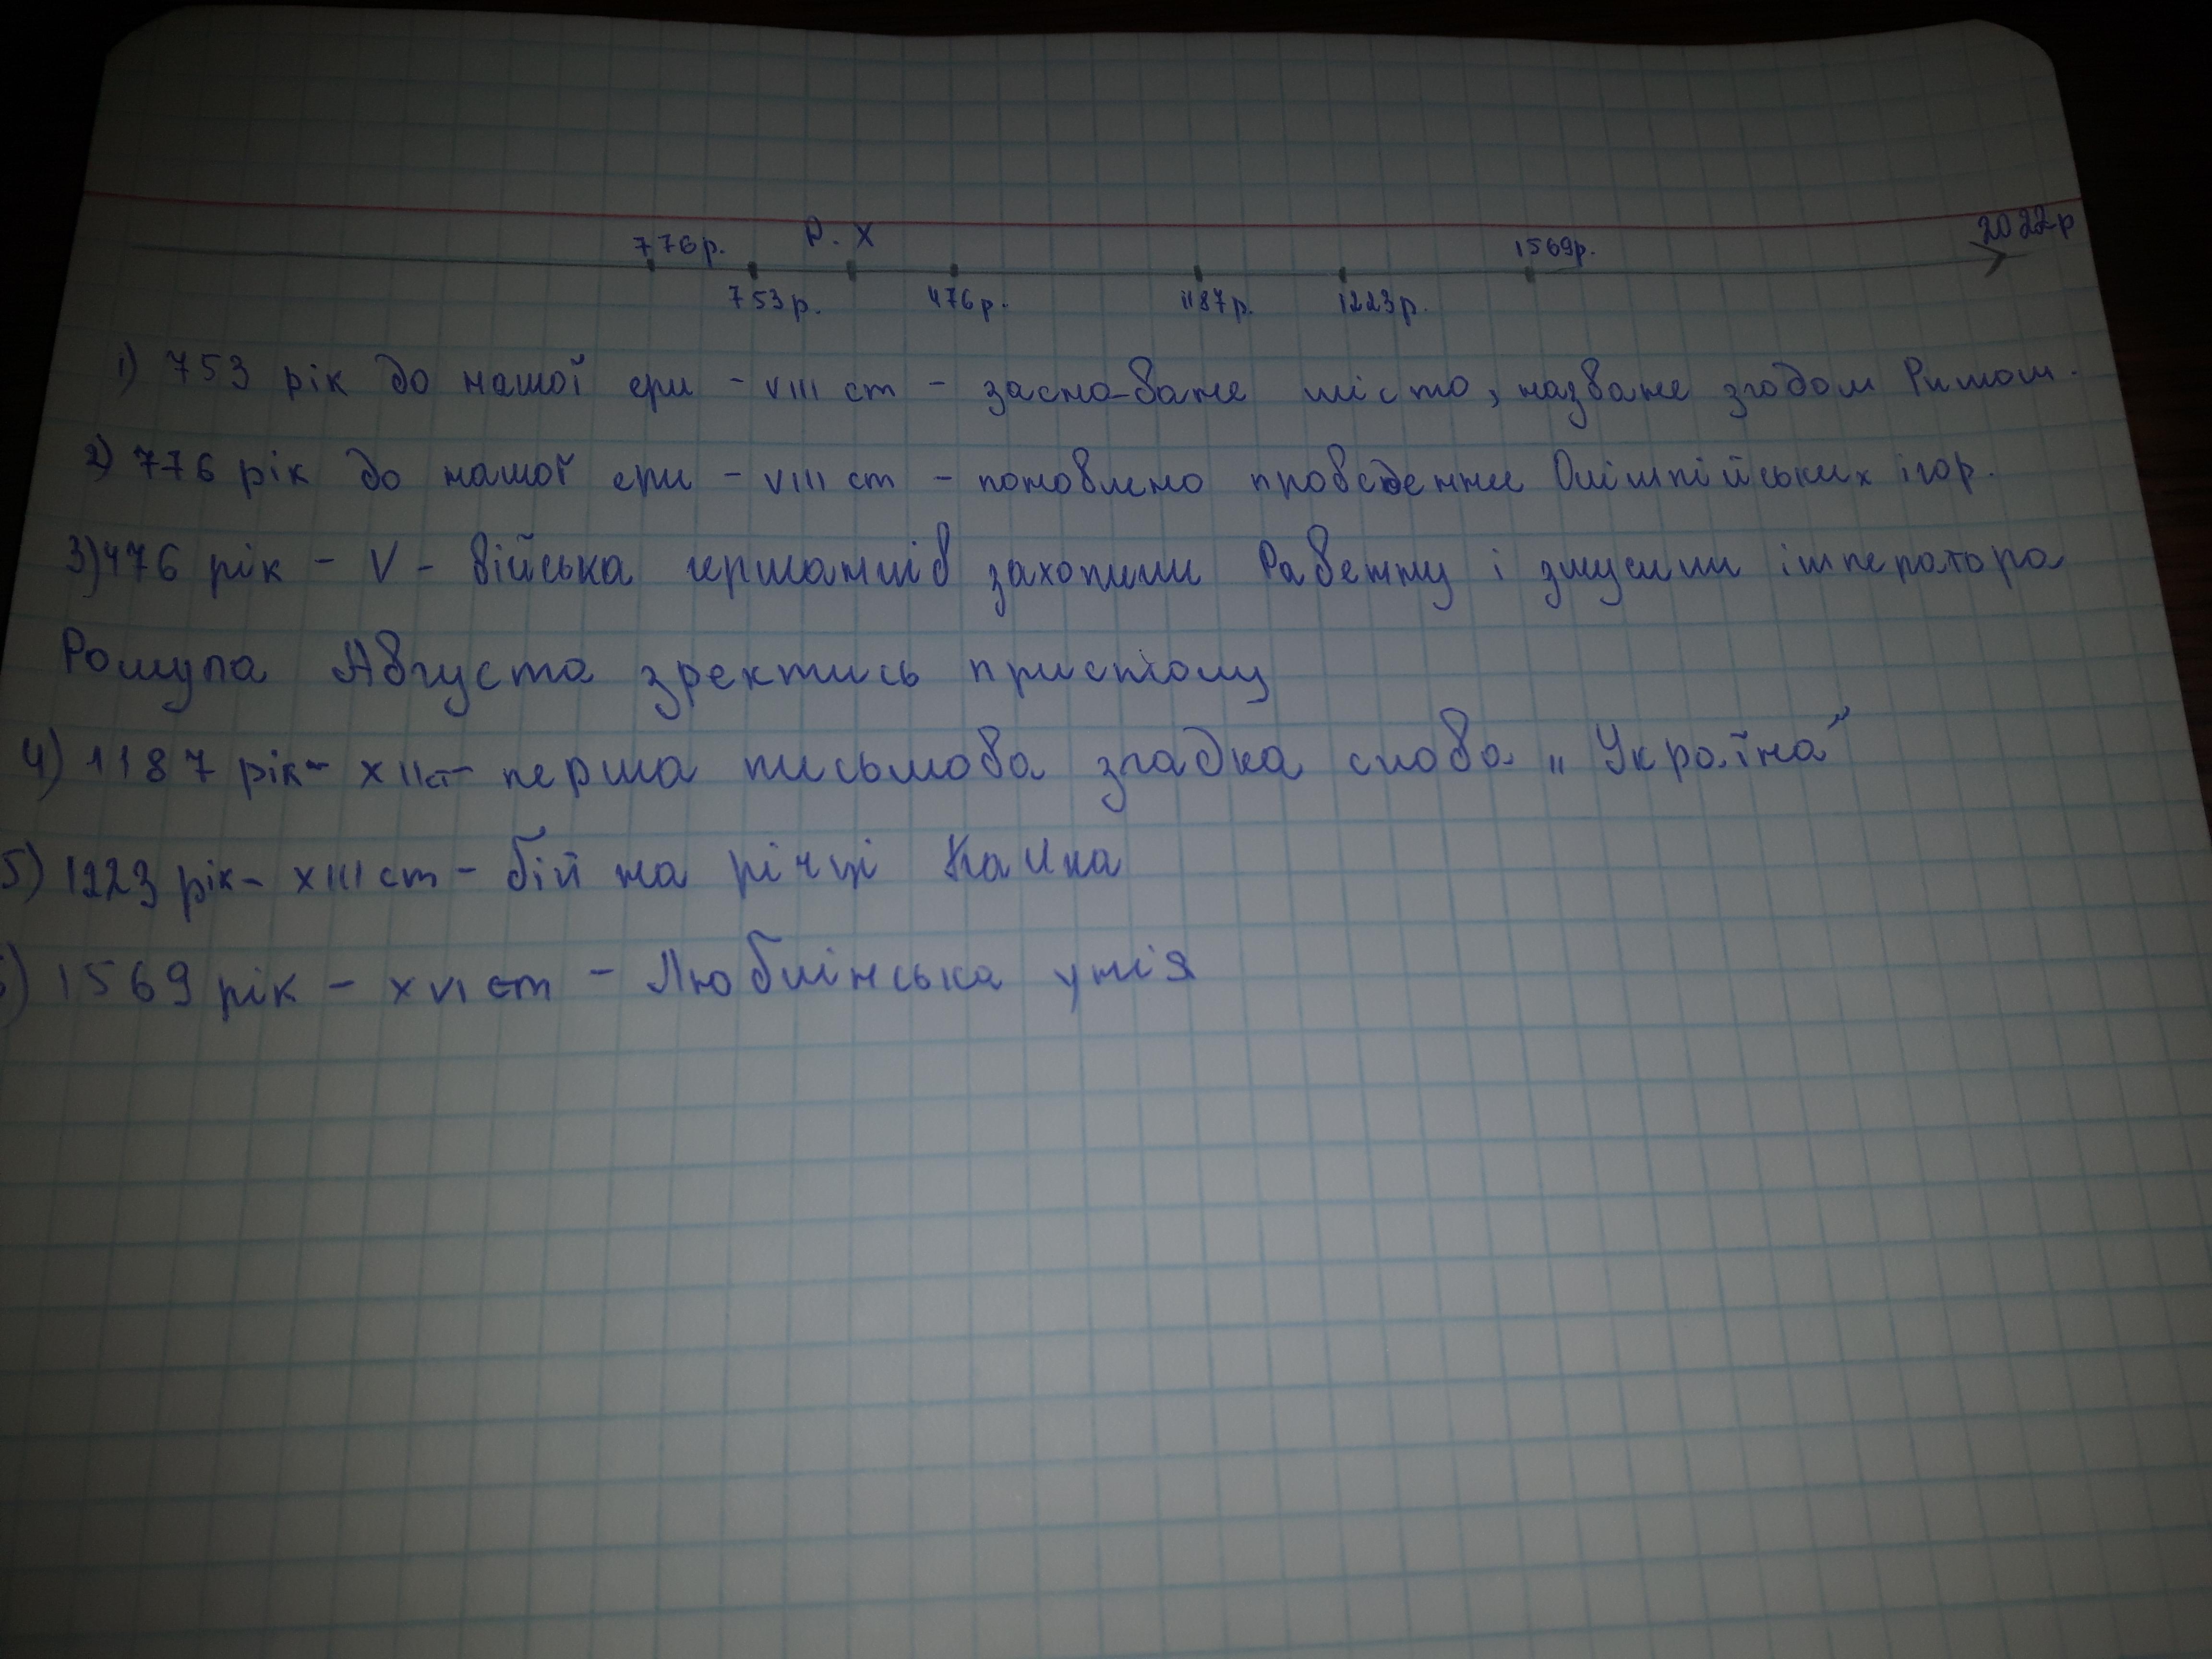 776р. Р. Х 1569р. 2022р
753р. 476р. 1187р. 1223р.
1) 753 рік до нашої ери - VIII ст - засно-ване місто, назване згодом Римом.
2) 776 рік до нашої ери - VIII ст - поновлено проведення Олімпійських ігор.
3) 476 рік - V - війська германців захопили Равенну і змусили імператора
Ромула Августа зректись престолу
4) 1187 рік - XII ст - перша письмова згадка слова "Україна"
5) 1223 рік - XIII ст - бій на річці Калка
6) 1569 рік - XVI ст - Люблінська унія